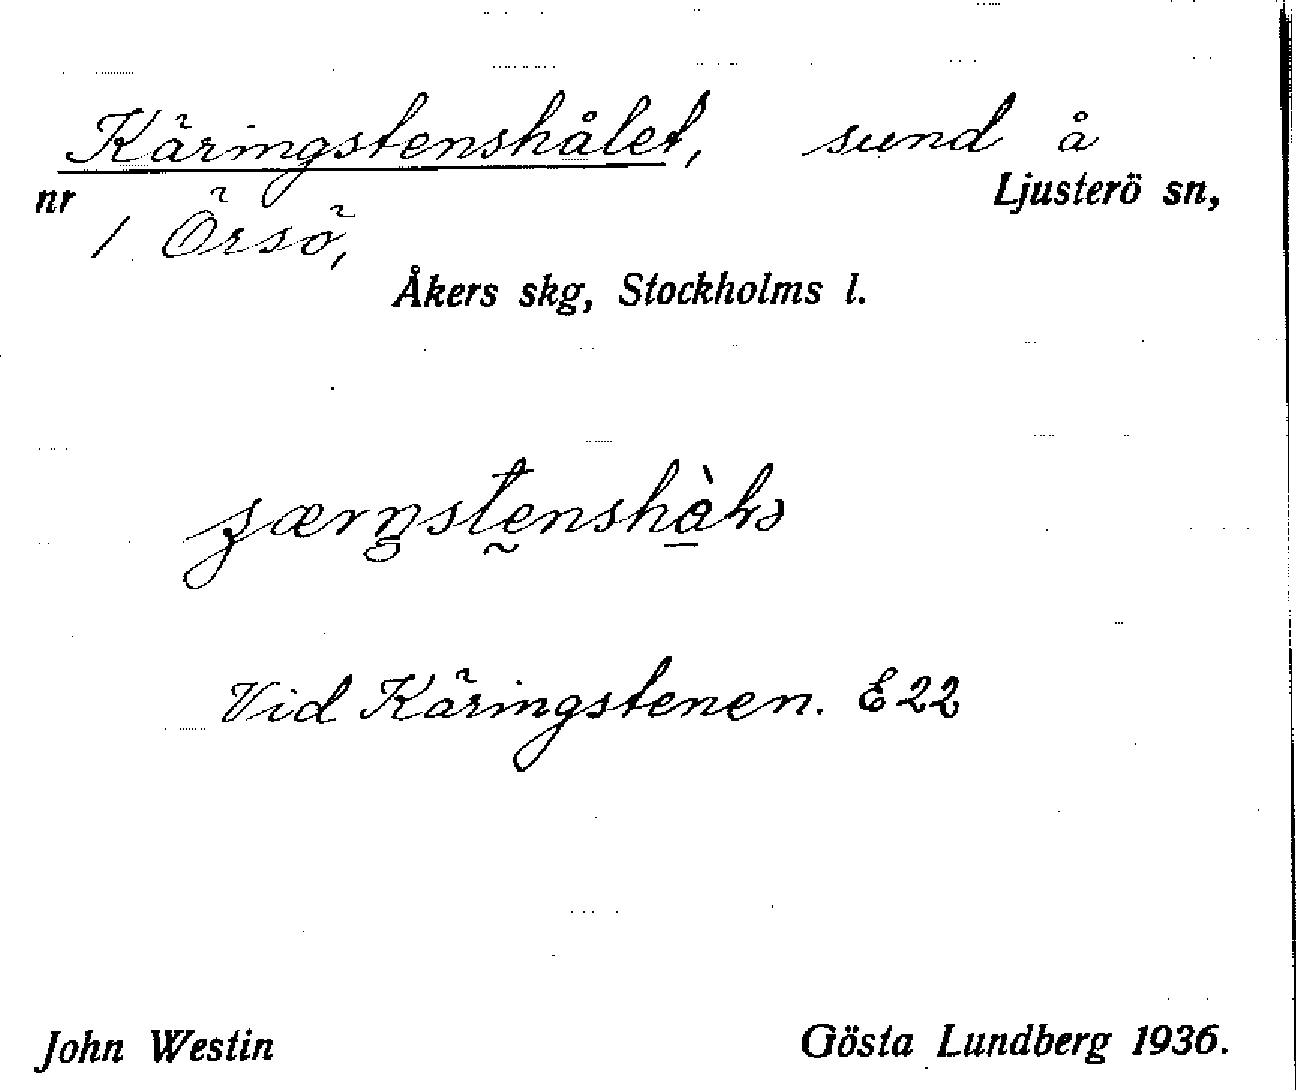 Käringstenshålet, sund å
nr 1 Örsö, Ljusterö sn,
Åkers skg, Stockholms l.
Vid Käringstenen. E22
John Westin Gösta Lundberg 1936.